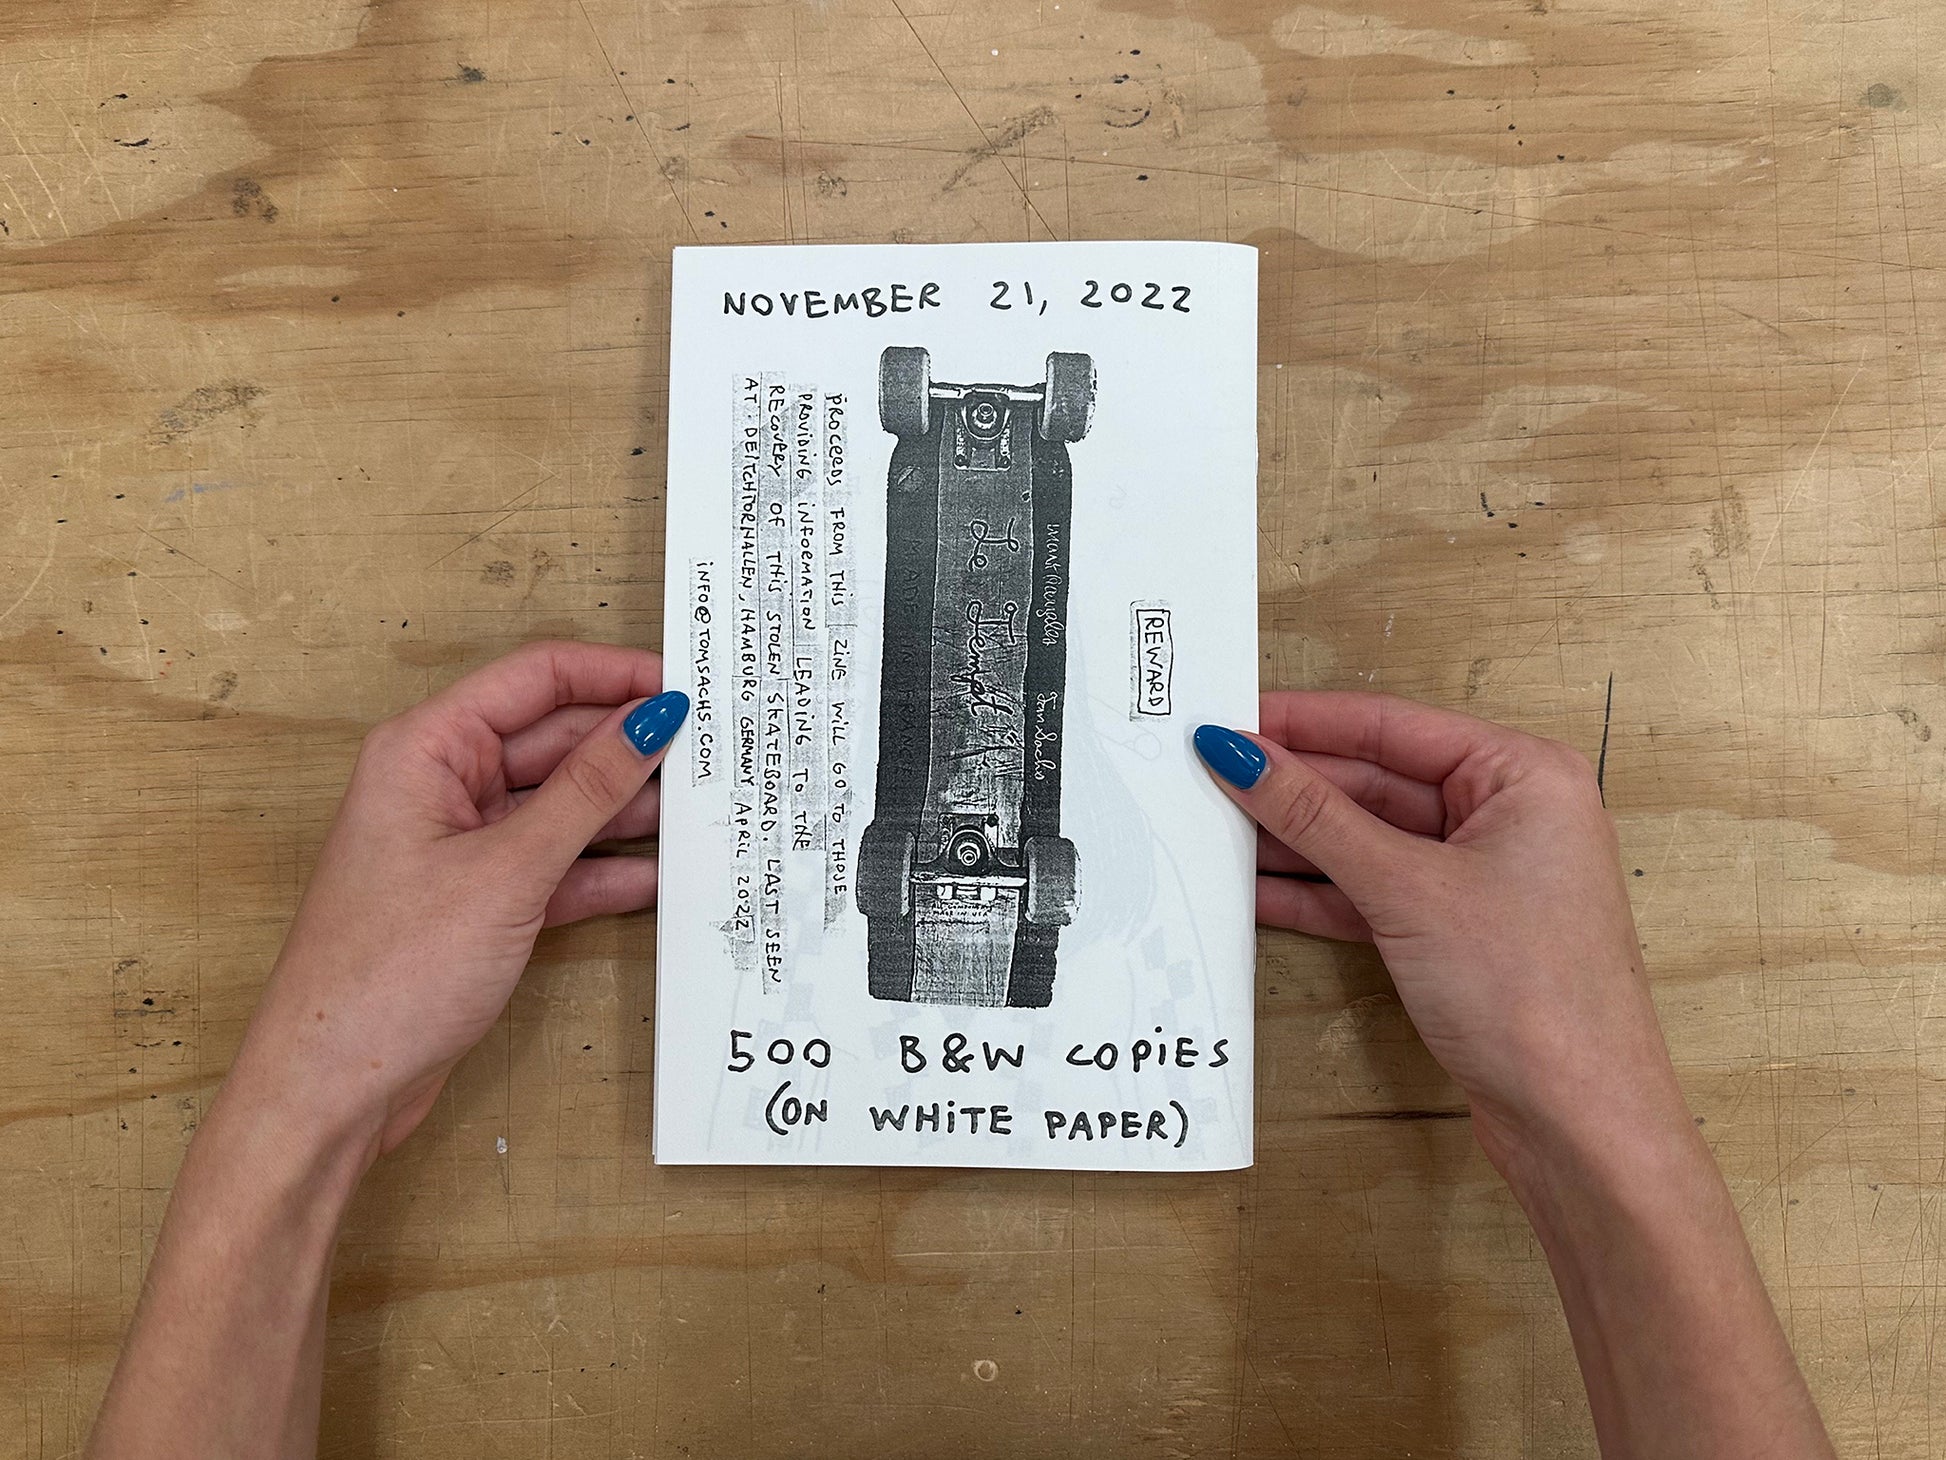 NOVEMBER 21, 2022
REWARD
Mark Gonzales Tom Sachs
Le Tempt
MADE IN FRANCE
ALL COMPONENTS
MADE IN USA
PROCEEDS FROM THIS ZINE WILL GO TO THOSE
PROVIDING INFORMATION LEADING TO THE
RECOVERY OF THIS STOLEN SKATEBOARD. LAST SEEN
AT: DEITCHTORHALLEN, HAMBURG GERMANY APRIL 2022
INFO@TOMSACHS.COM
500 B&W COPIES
(ON WHITE PAPER)